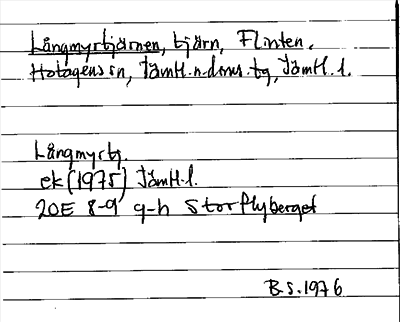 Långmyrtjärnen, tjärn, Flinten,
Hotagens sn, Jämtl.n.doms.tg, Jämtl.l.
Långmyrtj.
ek (1975) Jämtl.l.
20E 8-9 g-h Storflyberget
B.S.1976